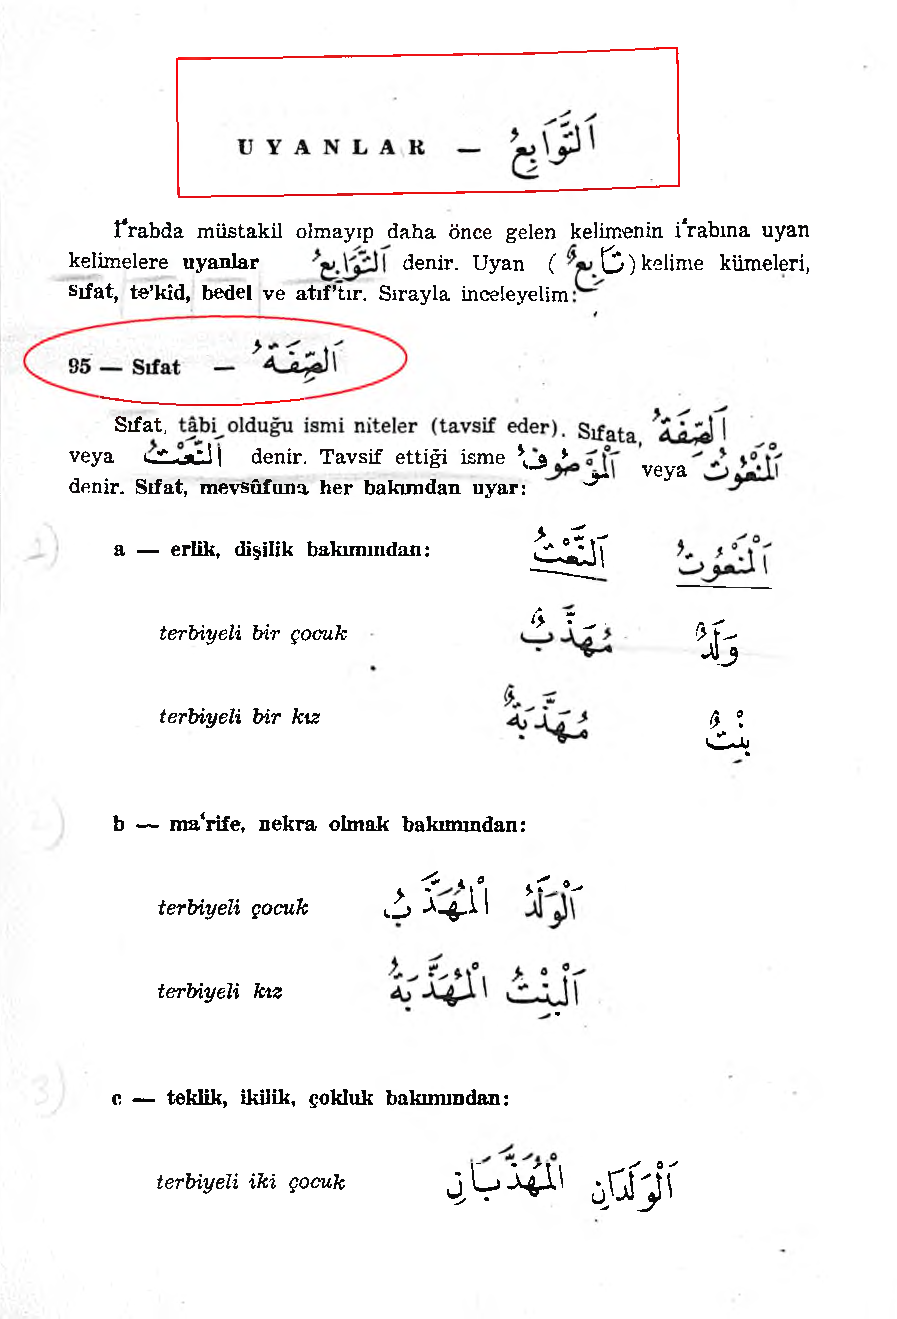 UYANLAR — اَلتَّوَابِعُ
İ'rabda müstakil olmayıp daha önce gelen kelimenin i'rabına uyan
kelimelere uyanlar اَلتَّوَابِعُ denir. Uyan ( تَابِعٌ ) kelime kümeleri,
sıfat, te'kîd, bedel ve atıf'tır. Sırayla inceleyelim:
95 — Sıfat — اَلصِّفَةُ
Sıfat, tâbi olduğu ismi niteler (tavsif eder). Sıfata, اَلصِّفَةُ
veya اَلنَّعْتُ denir. Tavsif ettiği isme اَلْمَوْصُوفُ veya اَلْمَنْعُوتُ
denir. Sıfat, mevsûfuna her bakımdan uyar:
1)
a — erlik, dişilik bakımından: اَلنَّعْتُ اَلْمَنْعُوتُ
terbiyeli bir çocuk مُهَذَّبٌ وَلَدٌ
terbiyeli bir kız مُهَذَّبَةٌ بِنْتٌ
2)
b — ma'rife, nekra olmak bakımından:
terbiyeli çocuk اَلْوَلَدُ الْمُهَذَّبُ
terbiyeli kız اَلْبِنْتُ الْمُهَذَّبَةُ
3)
c — teklik, ikilik, çokluk bakımından:
terbiyeli iki çocuk اَلْوَلَدَانِ الْمُهَذَّبَانِ